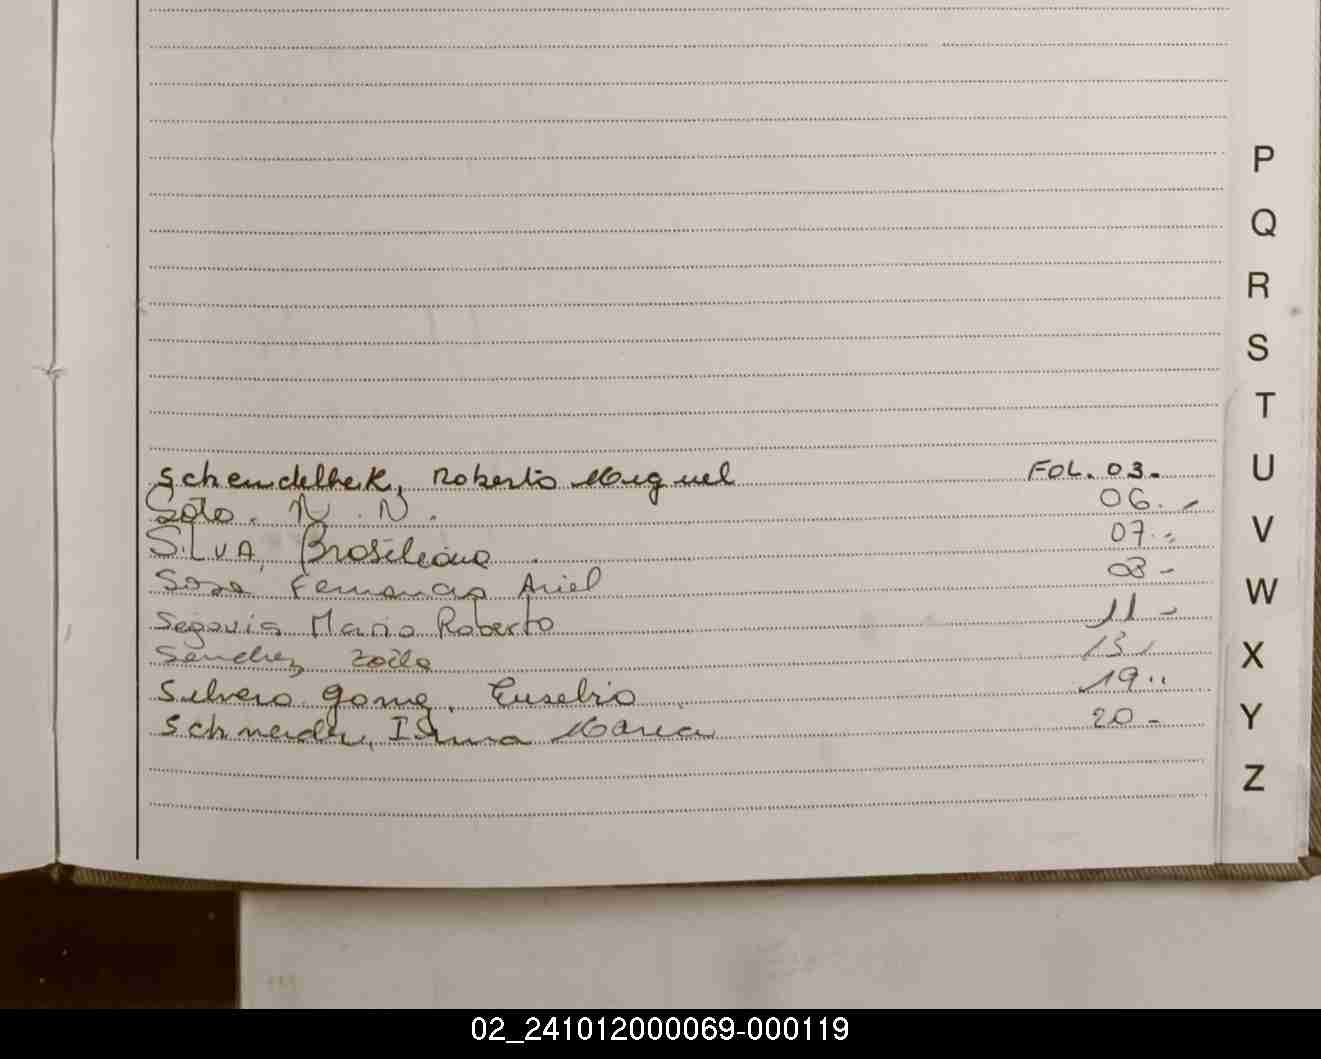 Schendelbek, Roberto Miguel FOL. 03.-
Soto. N. N. 06.-
SILVA, Brasileana 07.-
Sosa Fernando Ariel 08-
Segovia Mario Roberto 11-
Sanchez Zoilo 13
Silvero Gomez, Eusebio 19..
Schneider, Irma Maria 20-
P
Q
R
S
T
U
V
W
X
Y
Z
02_241012000069-000119